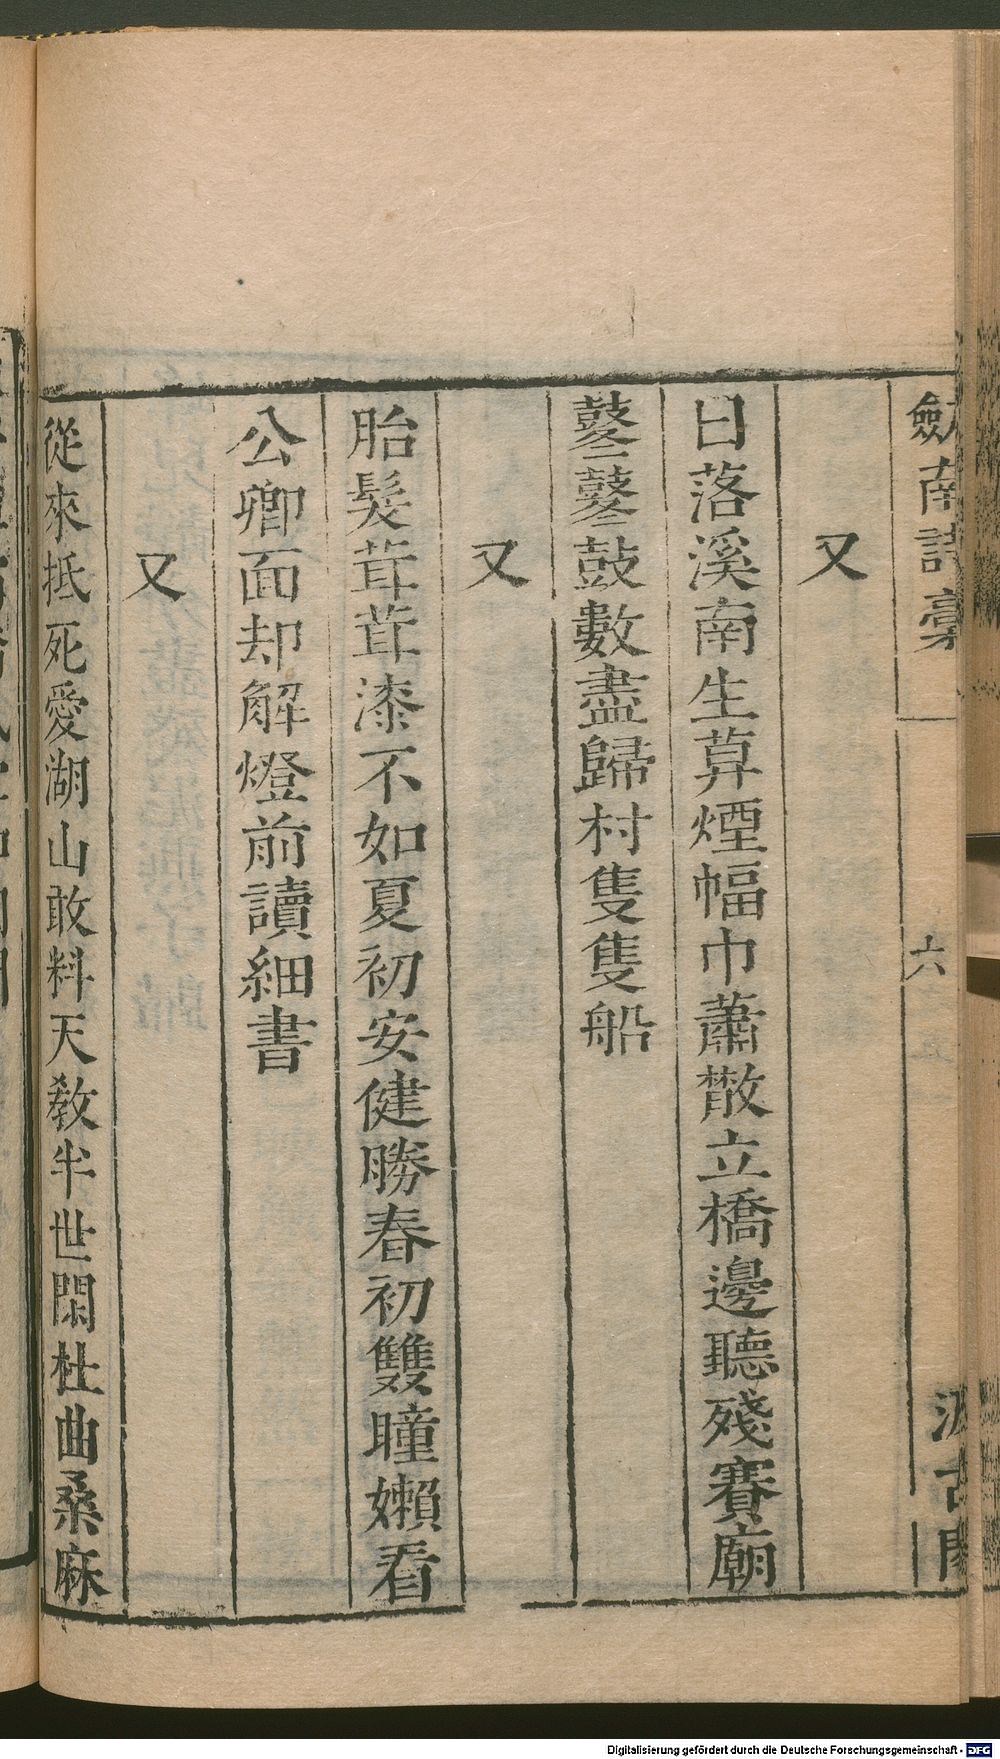 劒南詩稾
六
汲古閣
又
日落溪南生莫煙幅巾蕭散立橋邊聽殘賽廟
鼕鼕鼓數盡歸村隻隻船
又
胎髮茸茸漆不如夏初安健勝春初雙瞳嬾看
公卿面却解燈前讀細書
又
從來抵死愛湖山敢料天教半世閑杜曲桑麻
Digitalisierung gefördert durch die Deutsche Forschungsgemeinschaft - DFG